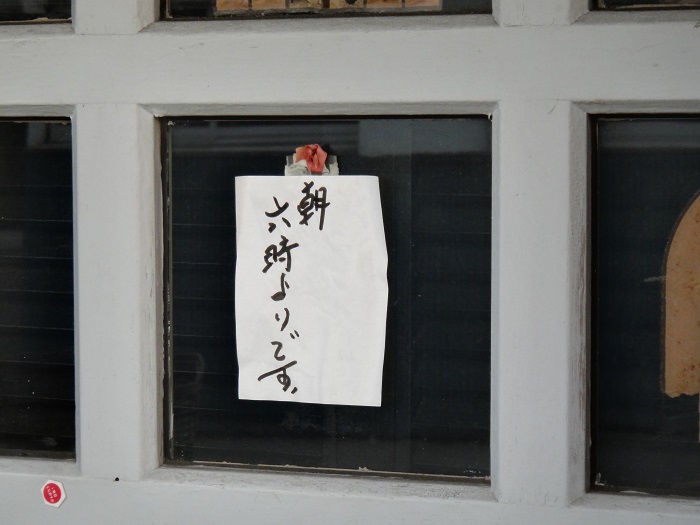 朝
六時よりです。